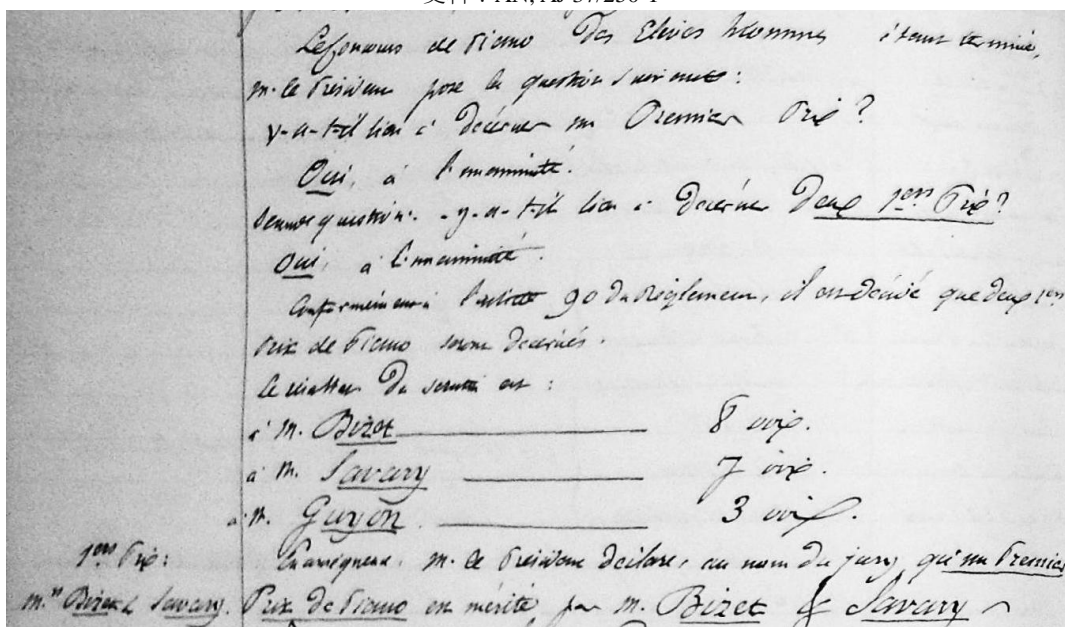 史料：AN, AJ 37/250-1
Le Concours de Piano des Elèves hommes étant terminé,
M. le Président pose la question suivante :
y-a-t-il lieu à décerner un Premier Prix ?
Oui, à l'unanimité.
question : - y-a-t-il lieu à décerner Deux 1ers Prix ?
Oui, à l'unanimité.
Conformément à l'article 90 du Règlement, il est décidé que deux 1ers
Prix de Piano seront décernés.
Le résultat du scrutin est :
à M. Bizet 8 voix.
à M. Savary 7 voix.
à M. Guyon 3 voix.
En conséquence, M. le Président déclare, au nom du jury, qu'un Premier
Prix de Piano est mérité par M. Bizet & Savary
1ers Prix :
Mrs Bizet & Savary.